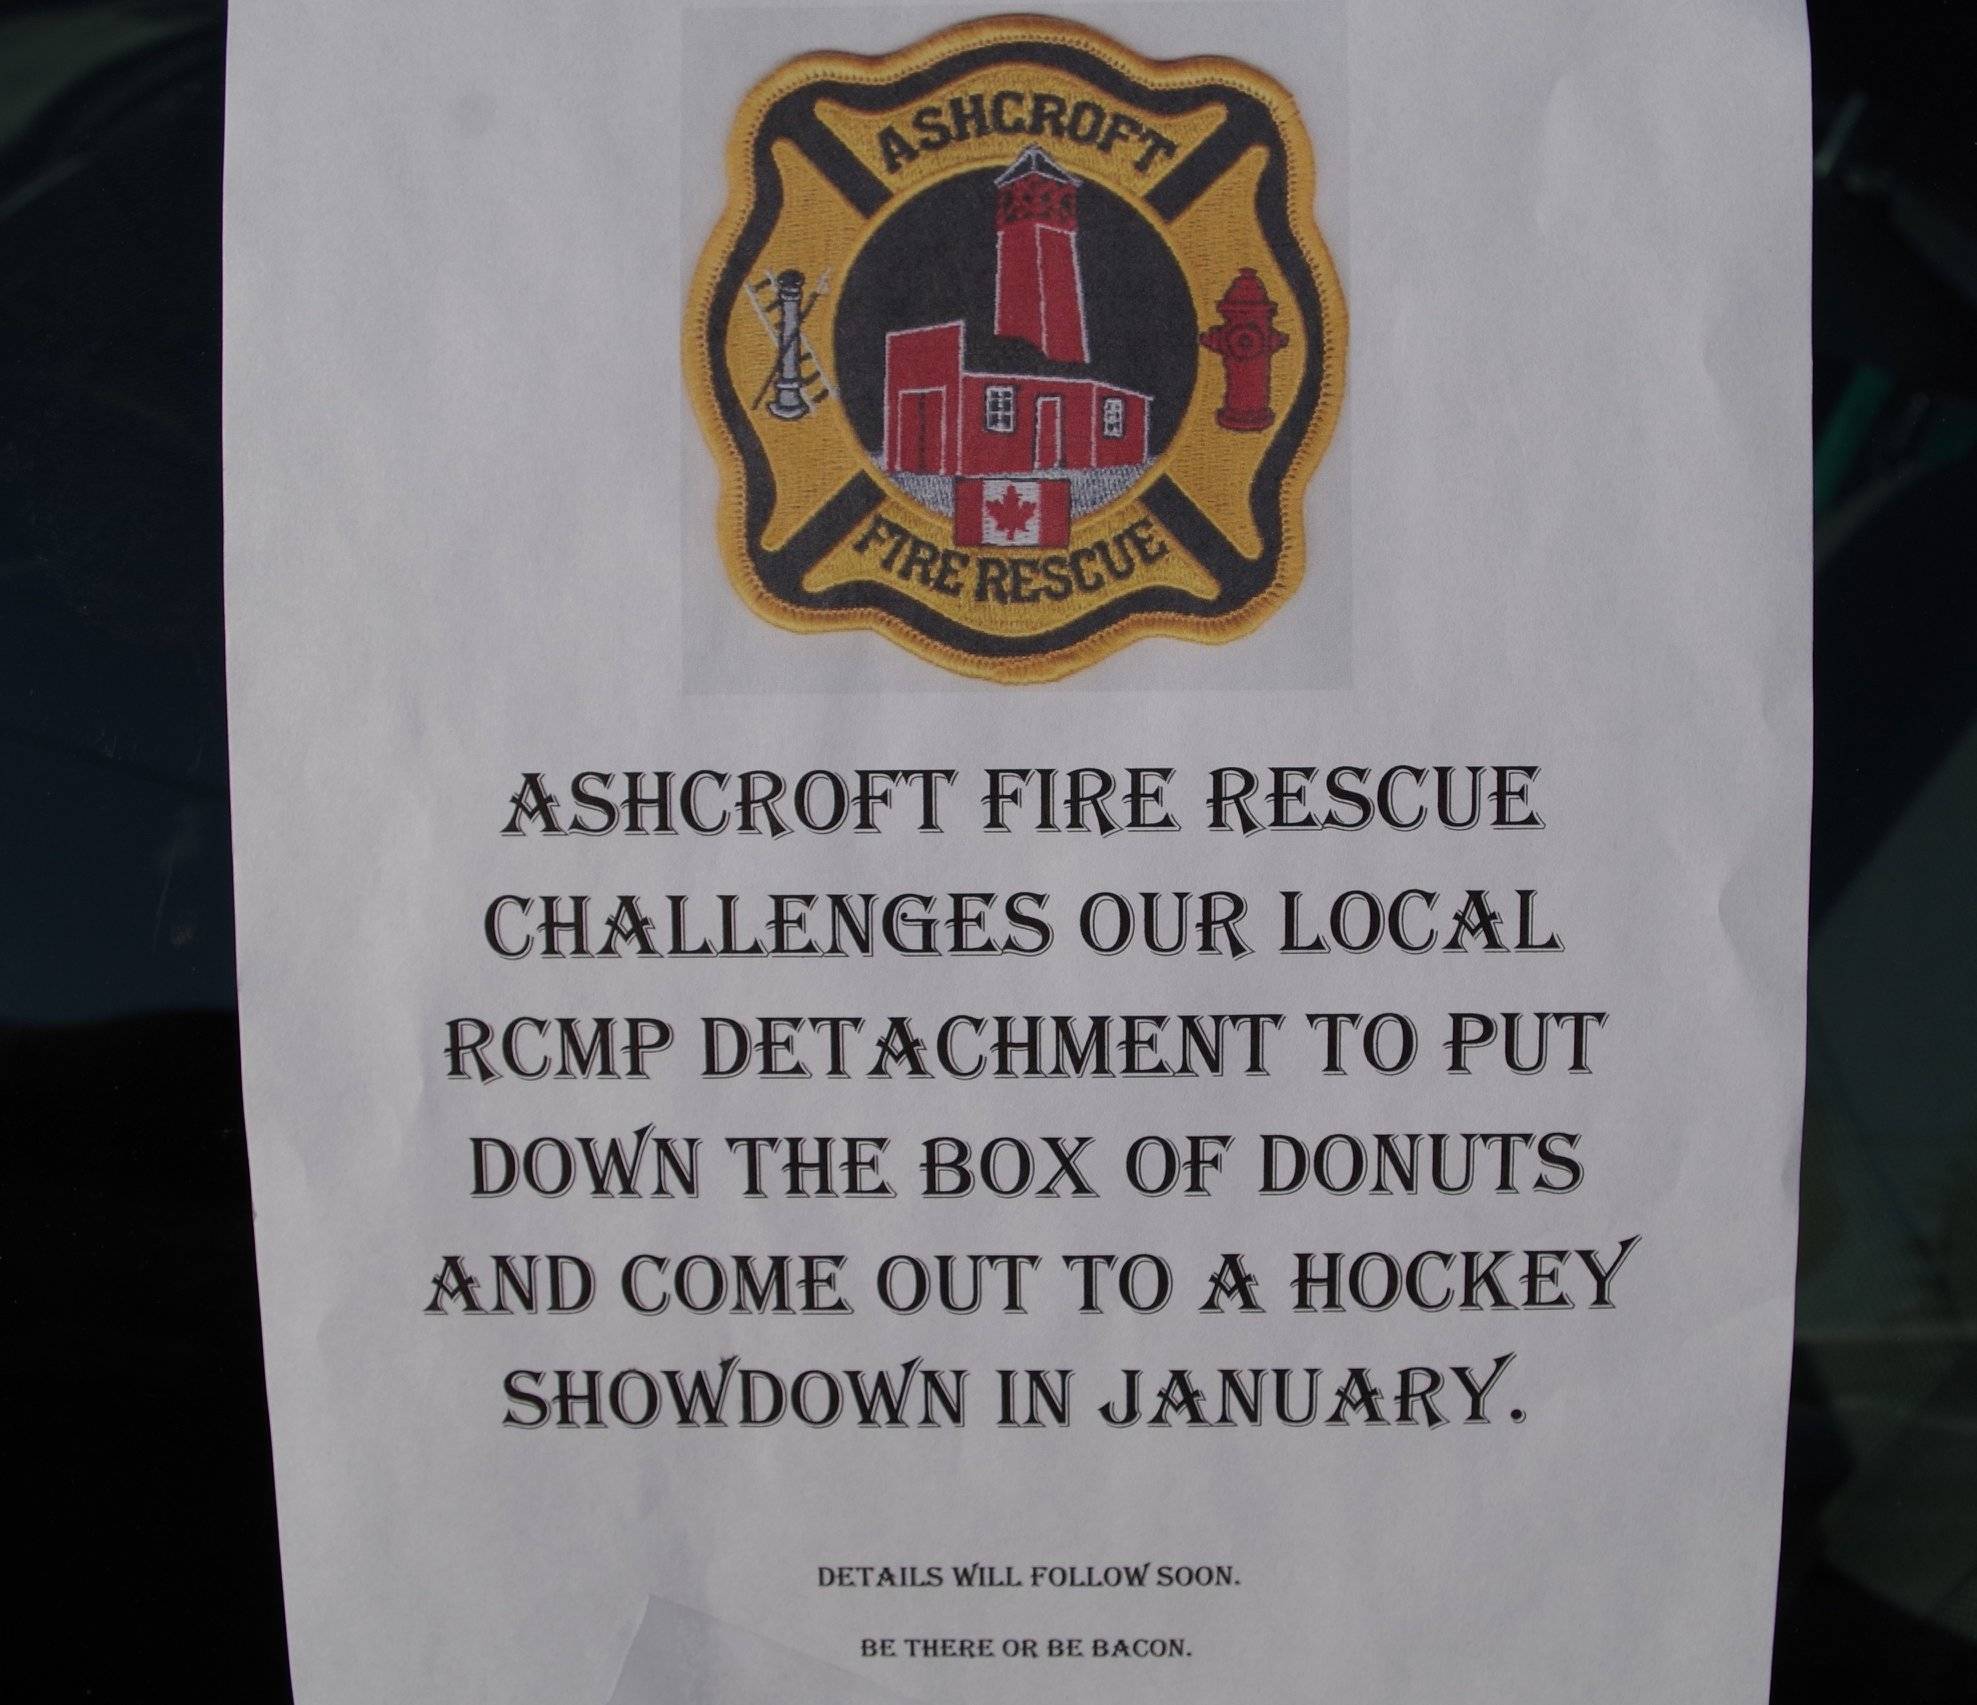 ASHCROFT
FIRE RESCUE
ASHCROFT FIRE RESCUE
CHALLENGES OUR LOCAL
RCMP DETACHMENT TO PUT
DOWN THE BOX OF DONUTS
AND COME OUT TO A HOCKEY
SHOWDOWN IN JANUARY.
DETAILS WILL FOLLOW SOON.
BE THERE OR BE BACON.